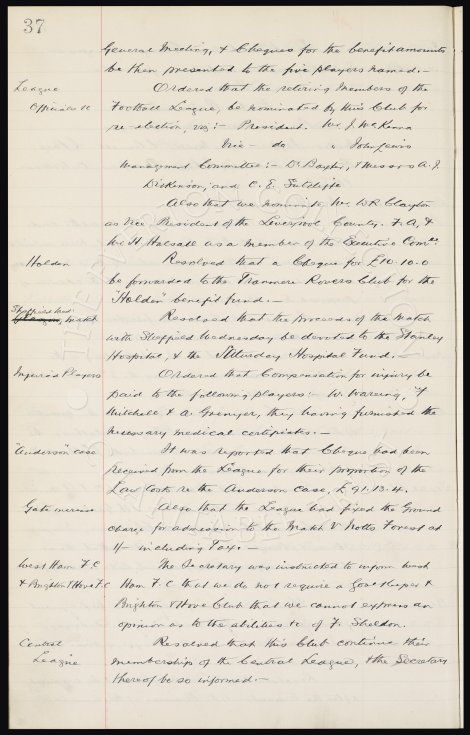 37
General Meeting, & Cheques for the benefit amounts
be then presented to the five players named.-
League
Officials &c
Ordered that the retiring Members of the
Football League, be nominated by this Club for
re-election, viz:- President. Mr. J. McKenna
Vice - do " John Lewis
Management Committee:- Dr Baxter, & Messrs A. J.
Dickinson, and C. E. Sutcliffe
Also that we nominate Mr. W.R. Clayton
as Vice President of the Liverpool County F.A, &
Mr H. Halsall as a member of the Executive Comtee.
Holden
Resolved that a Cheque for £10-10-0
be forwarded to the Tranmere Rovers Club for the
"Holden" benefit fund.-
Sheffield Wed:
match
Resolved that the proceeds of the match
with Sheffield Wednesday be devoted to the Stanley
Hospital, & the Saturday Hospital Fund.-
Injured Players
Ordered that Compensation for injury be
paid to the following players:- W. Wareing, F
Mitchell & A. Grenyer, they having furnished the
necessary medical certificates.-
"Anderson" case
It was reported that Cheque had been
received from the League for their proportion of the
Law Costs re the Anderson case, £91.13.4.
Gate
Also that the League had fixed the Ground
charge for admission to the Match V Notts Forest at
1/- including Tax.-
West Ham F.C
& Brighton & Hove F.C
The Secretary was instructed to inform West
Ham F.C that we do not require a Goal Keeper &
Brighton & Hove Club that we cannot express an
opinion as to the abilities &c of F. Sheldon.
Central
League
Resolved that this Club continue their
membership of the Central League, & the Secretary
thereof be so informed.-